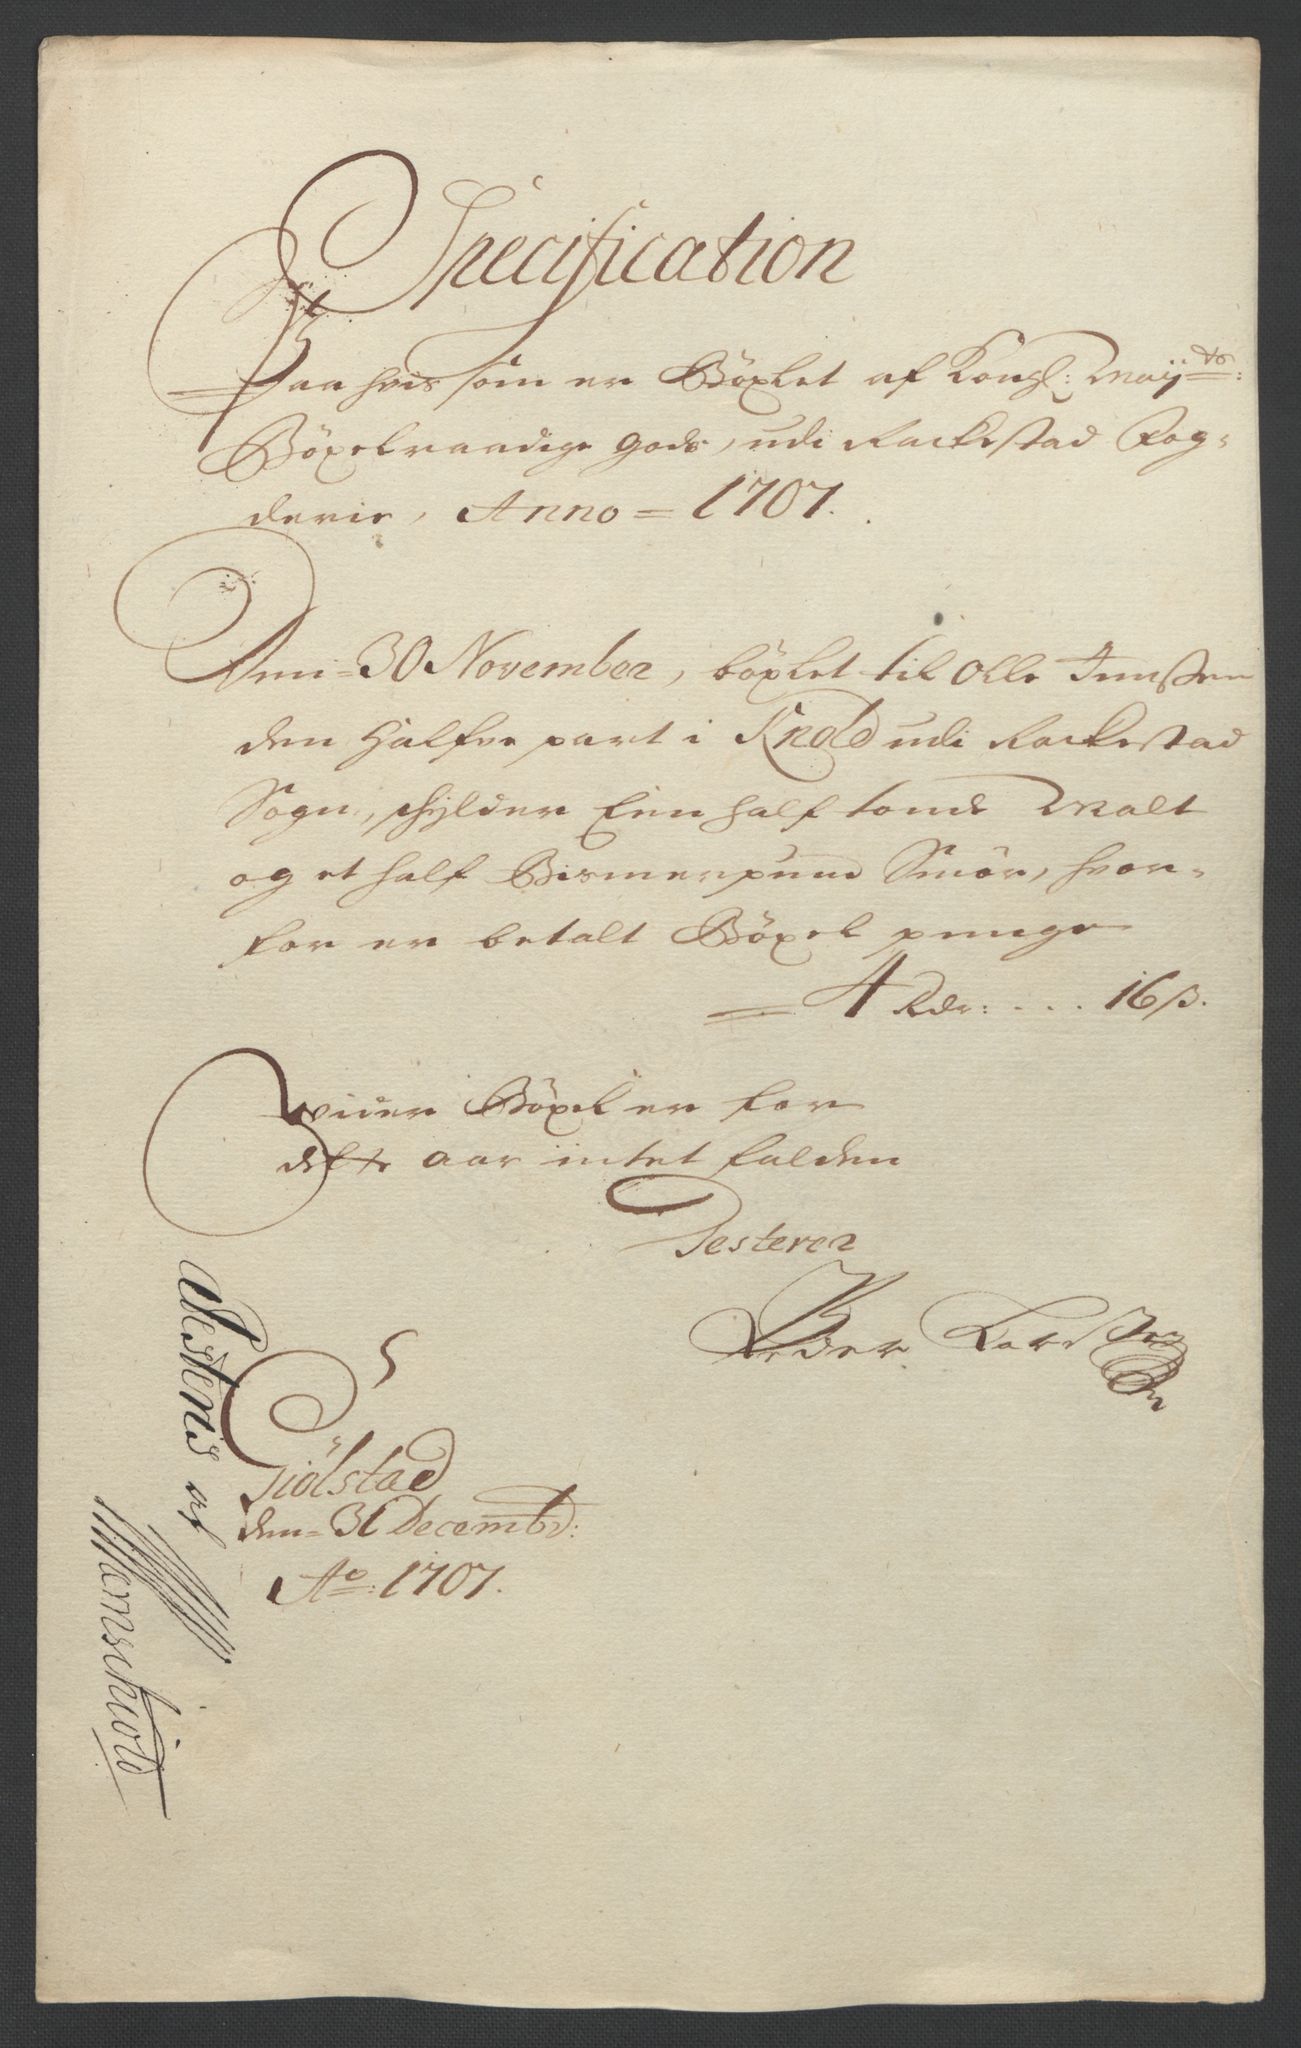 Specification
Paa hvis som er Böxlet af Kongl: Maÿts:
Böxelraadige gods, udi Rackestad Fog-
derie, Anno = 1707.
Den = 30 November, böxlet til Olle Jenssen
den Halfve part i Knold udi Rackestad
Sogn, schylder Een half tonde Malt
og et half Bismerpund Smör, hvor-
for er betalt Böxel penge
= 4 Rdr: . . . . 16 β.
Wider Böxel er for
dette aar intet falden
Testerer
Peder Larssen
Giölstad
den = 31 Decembr:
Ao: 1707.
Vesteris af
Wærnschiold